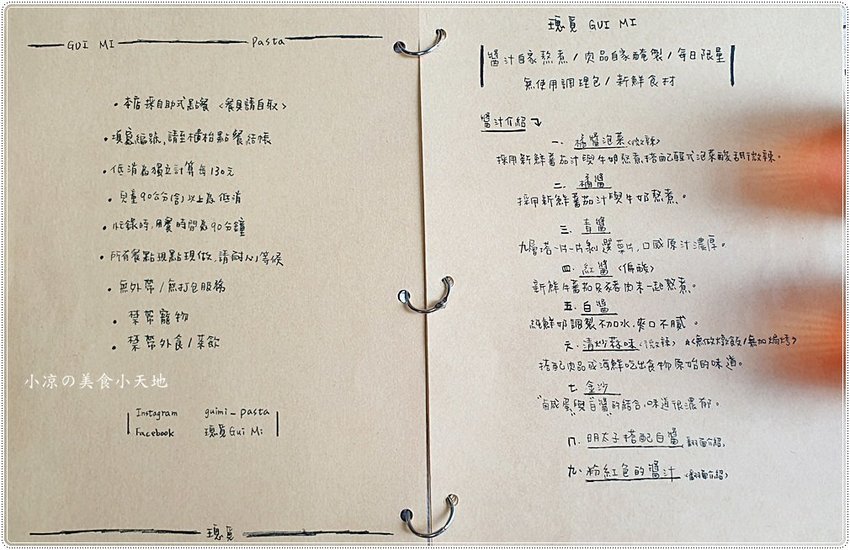 GUI MI Pasta
• 本店採自助式點餐 <餐具請自取>
• 填寫編號,請至櫃檯點餐結帳
• 低消為獨立計算每130元
• 兒童90公分(含)以上為低消
• 忙錄時,用餐時間為90分鐘
• 所有餐點現點現做,請耐心等候
• 無外帶/無打包服務
• 禁帶寵物
• 禁帶外食/菜飲
小凉の美食小天地
Instagram guimi_pasta
Facebook 瑰覓Gui Mi
瑰覓
瑰覓 GUI MI
醬汁自家熬煮/肉品自家醃製/每日限量
無使用調理包/新鮮食材
醬汁介紹
一、橘醬泡菜<微辣>
採用新鮮番茄汁與牛奶熬煮,搭配韓式泡菜酸甜微辣。
二、橘醬
採用新鮮番茄汁與牛奶熬煮。
三、青醬
九層塔一片一片剝選葉片,口感原汁濃厚。
四、紅醬<偏酸>
新鮮牛番茄及豬肉末一起熬煮。
五、白醬
純鮮奶調製不加水,爽口不膩。
六、清炒蒜味<微辣> *<無做燉飯/無加焗烤>
搭配肉品或海鮮吃出食物原始的味道。
七、金沙
"鹹蛋"與"白醬"的結合,味道很濃郁。
八、明太子搭配白醬<翻面介紹>
九、粉紅色的醬汁<翻面介紹>